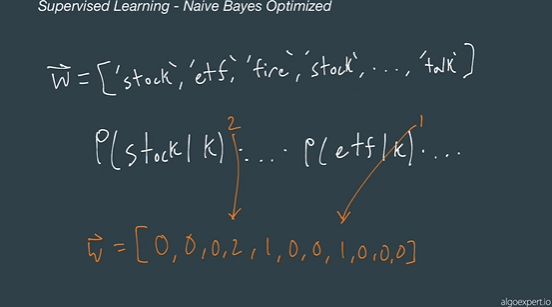 Supervised Learning - Naive Bayes Optimized
w⃗ = ['stock', 'etf', 'fire', 'stock', ..., 'talk']
2 1
P(stock | k) · ... · P(etf | k) · ...
w⃗ = [0, 0, 0, 2, 1, 0, 0, 1, 0, 0, 0]
algoexpert.io